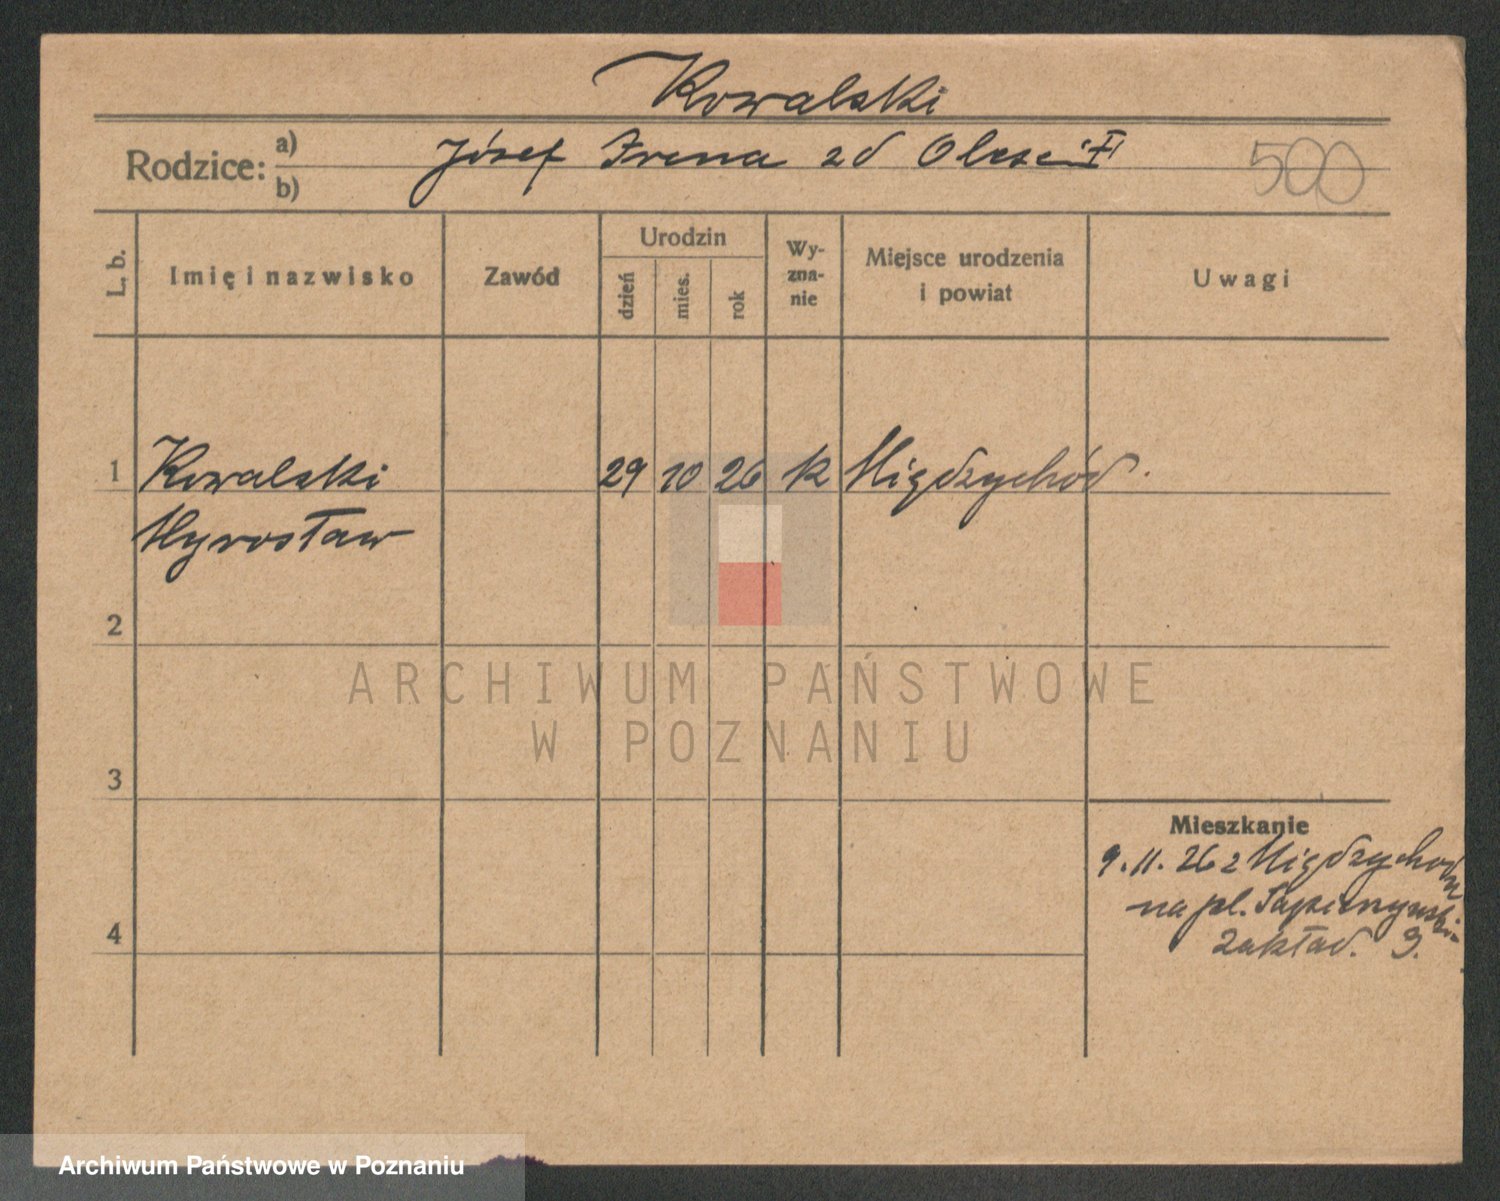 Kowalski
Rodzice: a)
b)
Józef Irena zd
500
L. b.
Imię i nazwisko
Zawód
Urodzin
dzień
mies.
rok
Wy-
zna-
nie
Miejsce urodzenia
i powiat
Uwagi
1 Kowalski 29 10 26 k Międzychód.
Myrosław
2
ARCHIWUM PAŃSTWOWE
W POZNANIU
3
Mieszkanie
9.11.26 z Międzychodu
na pl.
4
zakład. 9.
Archiwum Państwowe w Poznaniu